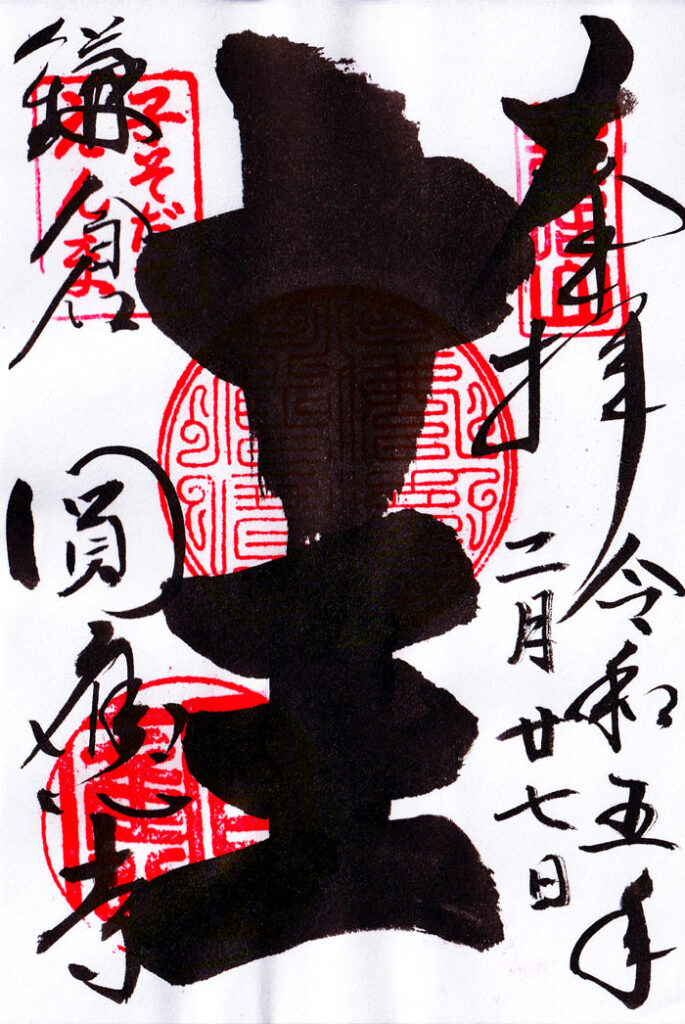 奉拝
令和五年
二月廿七日
十王
子そだ
鎌倉
圓應寺